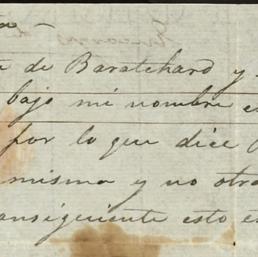 de Baratchard y
bajo mi nombre e
por lo que dice
misma y no otra
ansiguiente esto e